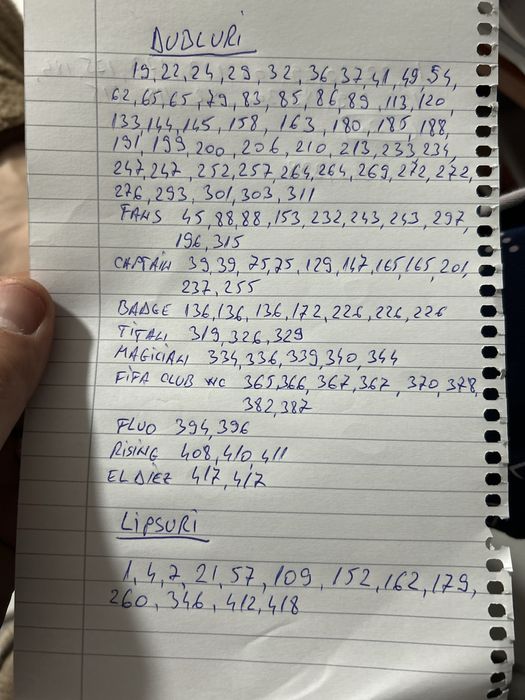 DUBLURI
19, 22, 24, 29, 32, 36, 37, 41, 49, 54,
62, 65, 65, 79, 83, 85, 86, 89, 113, 120,
133, 144, 145, 158, 163, 180, 185, 188,
191, 199, 200, 206, 210, 213, 233, 234,
247, 247, 252, 257, 264, 264, 269, 272, 272,
276, 293, 301, 303, 311
FANS 45, 88, 88, 153, 232, 243, 243, 297,
196, 315
CAPTAIN 39, 39, 75, 75, 129, 147, 165, 165, 201,
237, 255
BADGE 136, 136, 136, 172, 226, 226, 226
TITANI 319, 326, 329
MAGICIANI 334, 336, 339, 340, 344
FIFA CLUB WC 365, 366, 367, 367, 370, 378,
382, 387
FLUO 394, 396
RISING 408, 410, 411
EL DIEZ 417, 417
LIPSURI
1, 4, 7, 21, 57, 109, 152, 162, 179,
260, 346, 412, 418